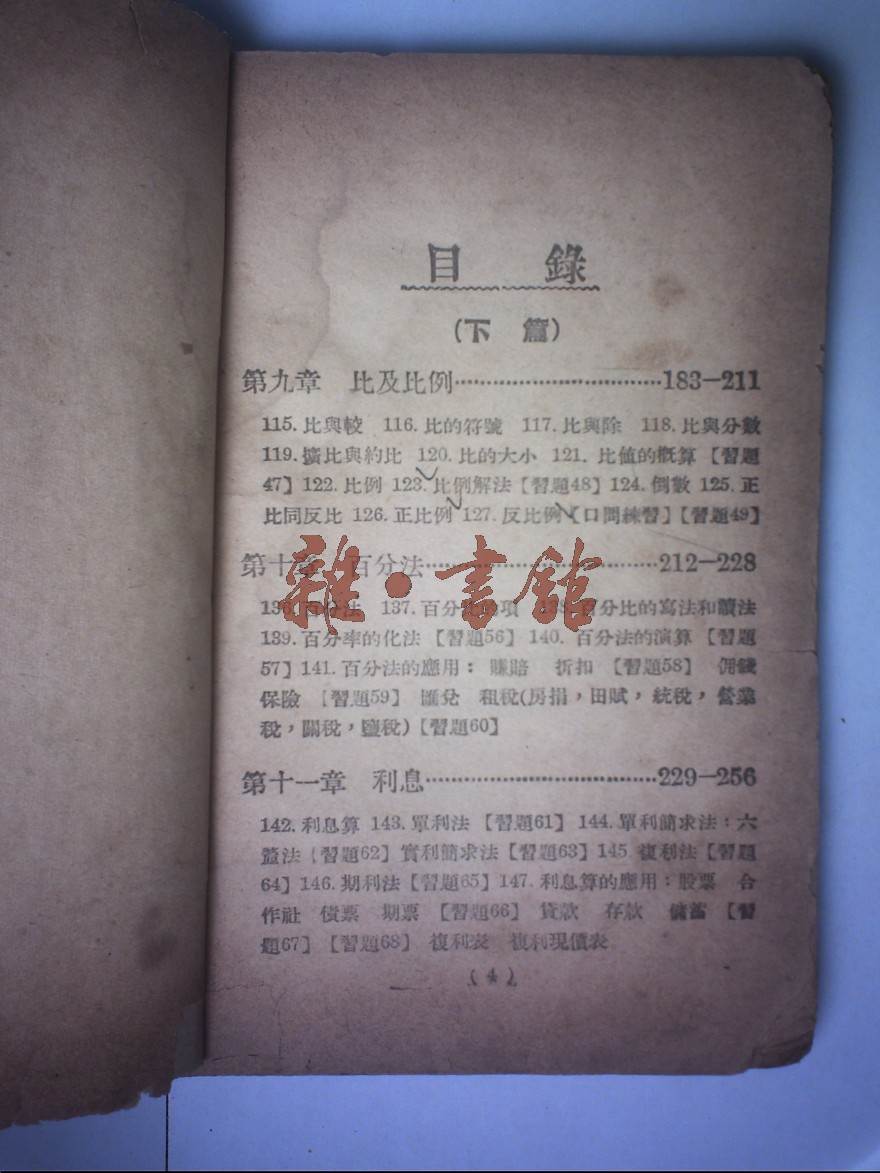 目 錄
(下 篇)
第九章 比及比例…………………………183—211
115.比與較 116.比的符號 117.比與除 118.比與分數
119.擴比與約比 120.比的大小 121.比值的概算【習題
47】122.比例 123.比例解法【習題48】124.倒數 125.正
比同反比 126.正比例 127.反比例【口問練習】【習題49】
第十章 百分法…………………………212—228
136.百分法 137.百分 項 138.百分比的寫法和讀法
139.百分率的化法【習題56】140.百分法的演算【習題
57】141.百分法的應用：賺賠 折扣【習題58】佣錢
保險【習題59】匯兌 租稅(房捐，田賦，統稅，營業
稅，關稅，鹽稅)【習題60】
第十一章 利息…………………………229—256
142.利息算 143.單利法【習題61】144.單利簡求法：六
釐法【習題62】實利簡求法【習題63】145 複利法【習題
64】146.期利法【習題65】147.利息算的應用：股票 合
作社 債票 期票【習題66】貸款 存款 儲蓄【習
題67】【習題68】複利表 複利現價表
(4)
雜·書館